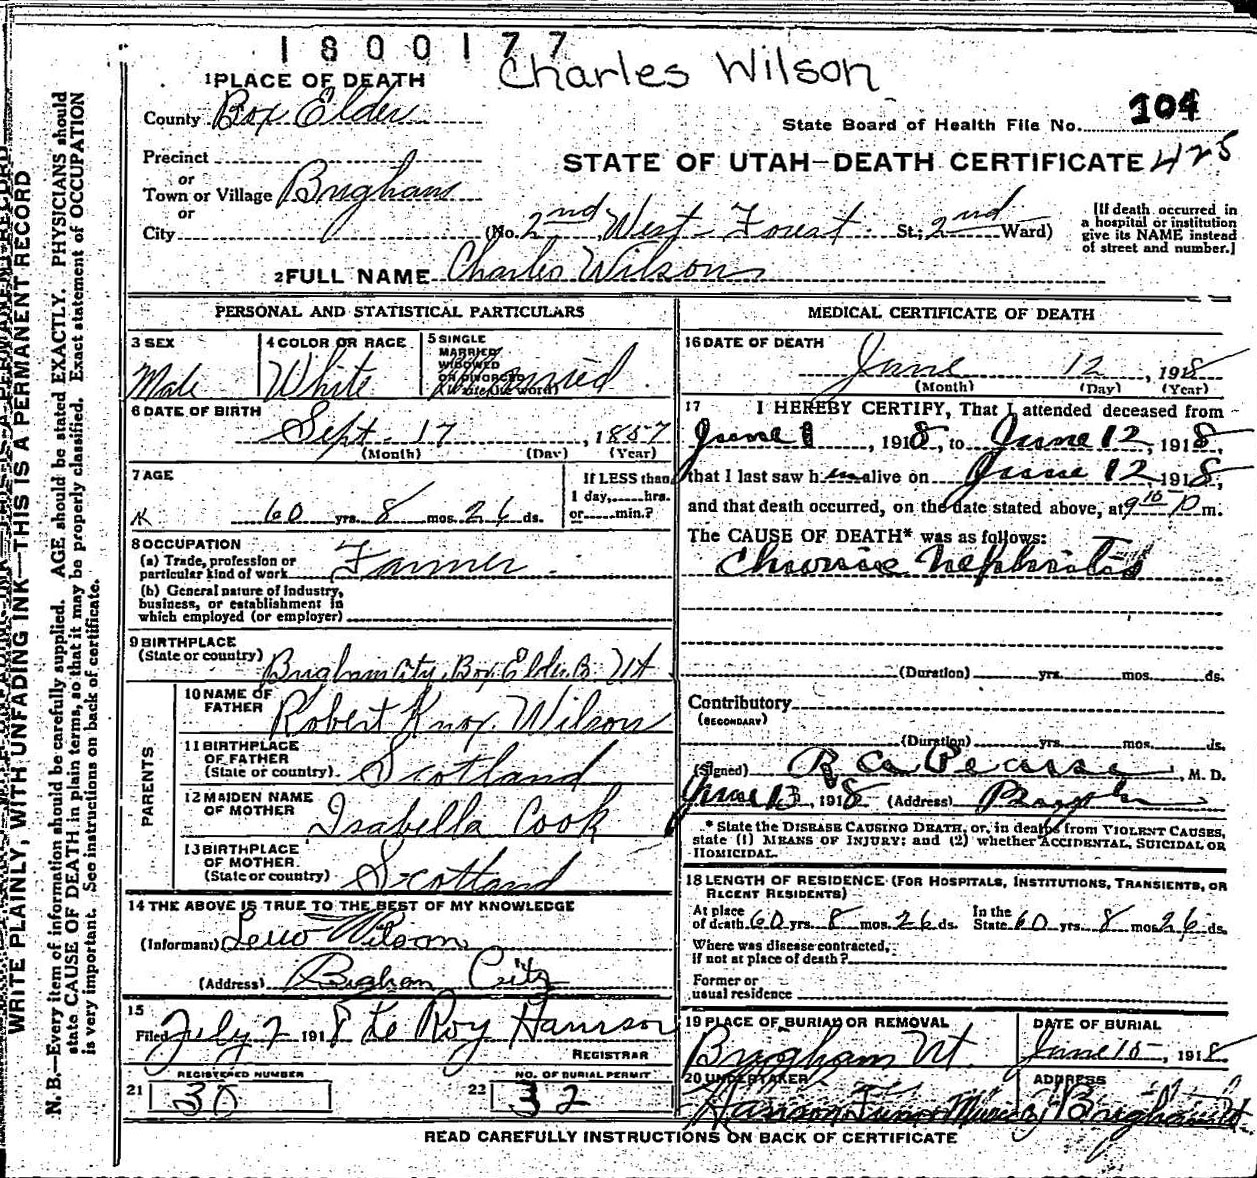 1800177
Charles Wilson
1 PLACE OF DEATH
County Box Elder
104
State Board of Health File No.
Precinct
or
STATE OF UTAH—DEATH CERTIFICATE 425
Town or Village Brigham
or
City (No. 2nd West Forest St.; 2nd Ward)
[If death occurred in
a hospital or institution
give its NAME instead
of street and number.]
2 FULL NAME Charles Wilson
PERSONAL AND STATISTICAL PARTICULARS
3 SEX
Male
4 COLOR OR RACE
White
5 SINGLE
MARRIED
WIDOWED
OR DIVORCED
(Write the word)
Married
6 DATE OF BIRTH
Sept. 17, 1857
(Month) (Day) (Year)
7 AGE
60 yrs. 8 mos. 26 ds.
If LESS than
1 day, hrs.
or min.?
8 OCCUPATION
(a) Trade, profession or
particular kind of work Farmer
(b) General nature of industry,
business, or establishment in
which employed (or employer)
9 BIRTHPLACE
(State or country) Brigham City, Box Elder, Ut
PARENTS
10 NAME OF
FATHER Robert Knox Wilson
11 BIRTHPLACE
OF FATHER
(State or country) Scotland
12 MAIDEN NAME
OF MOTHER Isabella Cook
13 BIRTHPLACE
OF MOTHER
(State or country) Scotland
14 THE ABOVE IS TRUE TO THE BEST OF MY KNOWLEDGE
(Informant) Wilson
(Address) Brigham City
15
Filed July 2 1918 Le Roy Hanson
REGISTRAR
REGISTERED NUMBER
21 30
NO. OF BURIAL PERMIT
22 32
MEDICAL CERTIFICATE OF DEATH
16 DATE OF DEATH
June 12, 1918
(Month) (Day) (Year)
17 I HEREBY CERTIFY, That I attended deceased from
June 1, 1918, to June 12, 1918,
that I last saw him alive on June 12, 1918,
and that death occurred, on the date stated above, at 9 10 P m.
The CAUSE OF DEATH* was as follows:
Chronic Nephritis
(Duration) yrs. mos. ds.
Contributory
(SECONDARY)
(Duration) yrs. mos. ds.
(Signed) Pearse, M. D.
June 13, 1918 (Address)
* State the DISEASE CAUSING DEATH, or, in deaths from VIOLENT CAUSES,
state (1) MEANS OF INJURY; and (2) whether ACCIDENTAL, SUICIDAL OR
HOMICIDAL.
18 LENGTH OF RESIDENCE (FOR HOSPITALS, INSTITUTIONS, TRANSIENTS, OR
RECENT RESIDENTS)
At place
of death 60 yrs. 8 mos. 26 ds.
In the
State 60 yrs. 8 mos. 26 ds.
Where was disease contracted,
if not at place of death?
Former or
usual residence
19 PLACE OF BURIAL OR REMOVAL
Brigham Ut.
DATE OF BURIAL
June 15, 1918
20 UNDERTAKER
ADDRESS
Brigham Ut.
READ CAREFULLY INSTRUCTIONS ON BACK OF CERTIFICATE
WRITE PLAINLY, WITH UNFADING INK—THIS IS A PERMANENT RECORD
N. B.—Every item of information should be carefully supplied. AGE should be stated EXACTLY. PHYSICIANS should
state CAUSE OF DEATH in plain terms, so that it may be properly classified. Exact statement of OCCUPATION
is very important. See instructions on back of certificate.